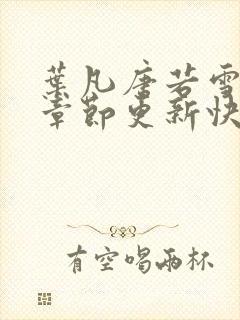 葉凡唐若雪
章節更新快
有空喝兩杯